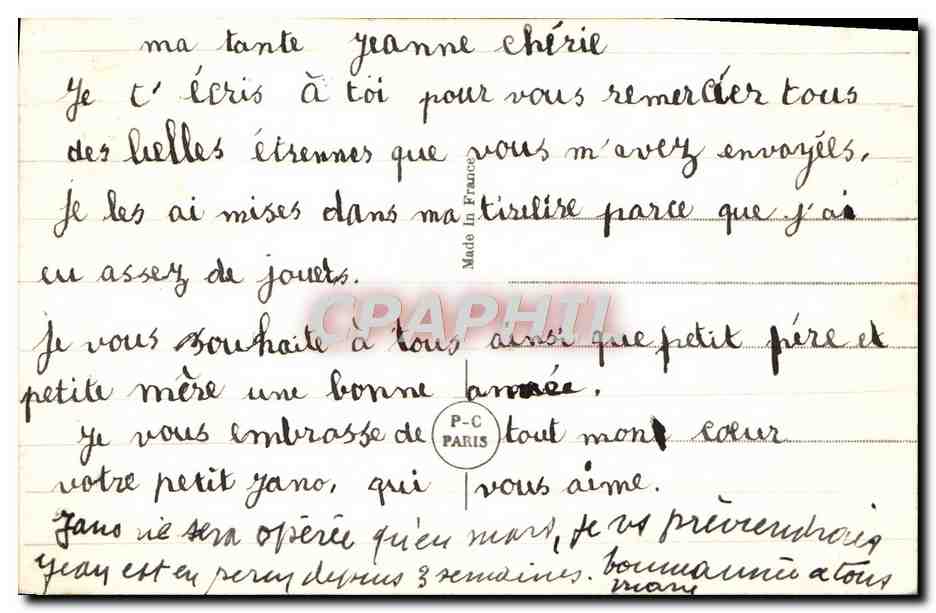 ma tante Jeanne chérie
Je t'écris à toi pour vous remercier tous
des belles étrennes que vous m'avez envoyées.
Je les ai mises dans ma tirelire parce que j'ai
eu assez de jouets.
Je vous souhaite à tous ainsi que petit père et
petite mère une bonne année.
Je vous embrasse de tout mon cœur
votre petit Jano, qui vous aime.
Jano ne sera opérée qu'en mars, je vs préviendrais
Jean est en perm depuis 3 semaines. bonne année a tous
marie
Made In France
P-C
PARIS
CPAPHIL